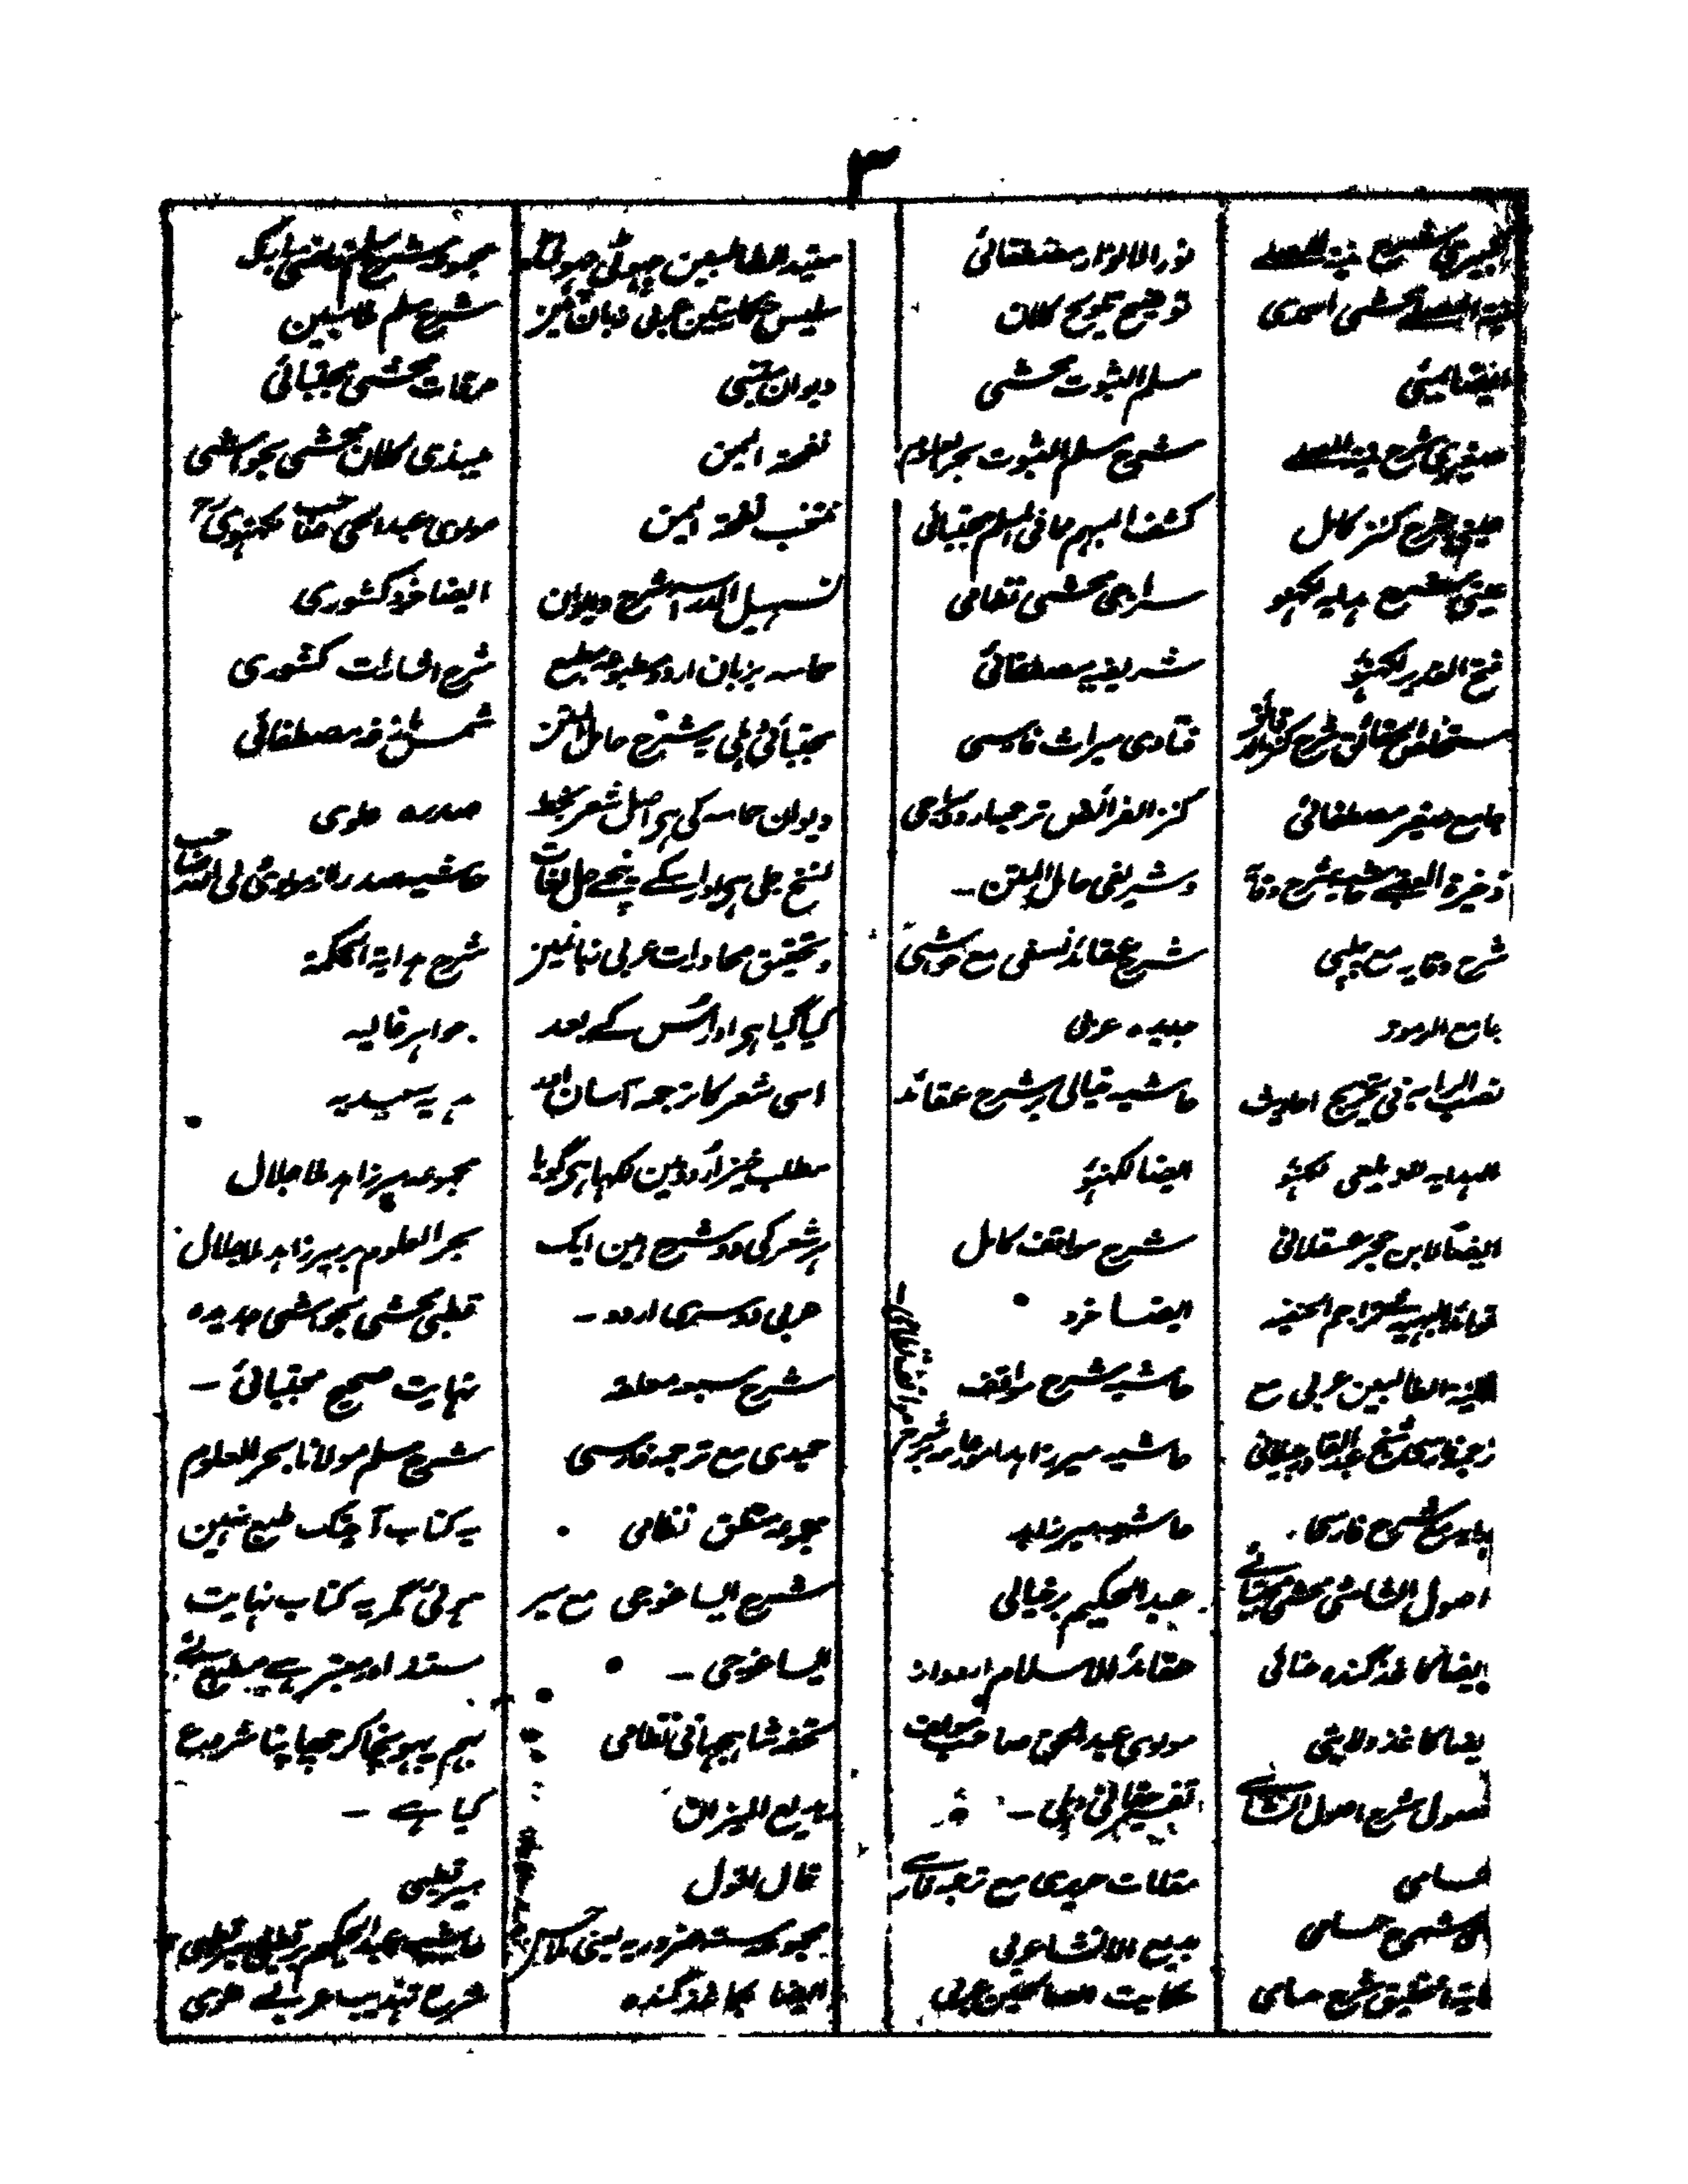 ۳
کبیری شرح منیۃ المصلے
منیۃ المصلے محشی احمدی
ایضا لمبئی
صغیری شرح منیۃ المصلے
عینی شرح کنز کامل
عینی شرح ہدایہ لکہنو
فتح القدیر لکہنؤ
مستخلص الحقائق شرح کنز الدقائق
جامع صغیر مصطفائی
ذخیرۃ العقبے حاشیہ شرح وقایہ
شرح وقایہ مع چلپی
جامع الرموز
نصب الرایہ فی تخریج احادیث
الہدایہ للزیلعی لکہنؤ
ایضا لابن حجر عسقلانی
فوائد البہیہ تراجم الحنفیہ
غنیۃ الطالبین عربی مع
ترجمہ فارسی شیخ عبد القادر جیلانی
ہدایہ مع شرح فارسی
اصول الشاشی محشی مجتبائے
ایضا کاغذ گندہ حنائی
ایضا کاغذ ولایتی
فصول شرح اصول الشاشے
حسامی
شرح حسامی
غایۃ التحقیق شرح حسامی
نور الانوار مصطفائی
توضیح تلویح کلان
مسلم الثبوت محشی
شرح مسلم الثبوت بحر العلوم
کشف المبہم مافی المسلم مجتبائی
سراجی محشی نظامی
شریفیہ مصطفائی
فتاوی میراث فارسی
کنز الفرائض ترجمہ اردو سراجی
وشریفی حامل المتن۔
شرح عقائد نسفی مع حواشی
جدیدہ عربی
حاشیہ خیالی بر شرح عقائد
ایضا لکہنؤ
شرح مواقف کامل
ایضا خرد
حاشیہ شرح مواقف
حاشیہ میر زاہد امور عامہ بر شرح
مواقف نظامی۔
حاشیہ میر زاہد
عبد الحکیم بر خیالی
عقائد الاسلام اردو از
مولوی عبد الحق صاحب مولف
تفسیر حقانی دہلی۔
مقامات حمیدی مع ترجمہ فارسے
بدیع الانشا عربی
حکایت الصالحین عربی
مفید الطالبین چہوٹی چہوٹی
سلیس حکایتین عربی زبان مین
دیوان متنبی
نفحۃ الیمن
منتخب نفحۃ الیمن
تسہیل الدراسہ شرح دیوان
حماسہ بزبان اردو مطبوعہ مطبع
مجتبائی دہلی یہ شرح حامل المتن
دیوان حماسہ کی ہر اصل شعر بخط
نسخ جلی ہے اور اسکے نیچے حل لغات
وتحقیق محاورات عربی زبانمین
کیا گیا ہے اور اُس کے بعد
اسی شعر کا ترجمہ آسان اور
مطلب خیز اُردو مین لکہا ہے گویا
ہر شعر کی دو شرح ہین ایک
عربی دوسری اردو۔
شرح سبعہ معلقہ
حمیدی مع ترجمہ فارسی
مجموعہ منطق نظامی
شرح ایساغوجی مع میر
ایساغوجی۔
تحفہ شاہجہانی نظامی
بدیع المیزان
قال اقول
مجموعہ ستہ ضروریہ یعنی
ایضا کاغذ گندہ
مجموعہ شرح سلم قاضی مبارک
شرح سلم ملا مبین
مرقات محشی مجتبائی
میبذی کلان محشی بحواشی
مولوی عبد الحی صاحب لکہنوی رح
ایضا خرد کشوری
شرح اشارات کشوری
شمس بازغہ مصطفائی
صدرہ علوی
حاشیہ صدرا از مولوی ولی اللہ صاحب
شرح ہدایۃ الحکمۃ
جواہر غالیہ
ہدیہ سعیدیہ
مجموعہ میرزاہد ملا جلال
بحر العلوم بر میرزاہد ملا جلال
قطبی محشی بحواشی جدیدہ
نہایت صحیح مجتبائی۔
شرح سلم مولانا بحر العلوم
یہ کتاب آجتک طبع نہین
ہوئی مگر یہ کتاب نہایت
مستند اور معتبر ہے مطبع نے
بہم پہونچا کر چہاپنا شروع
کیا ہے۔
میر قطبی
حاشیہ عبد الحکیم بر قطبی میر قطبی
شرح تہذیب عربے علوی